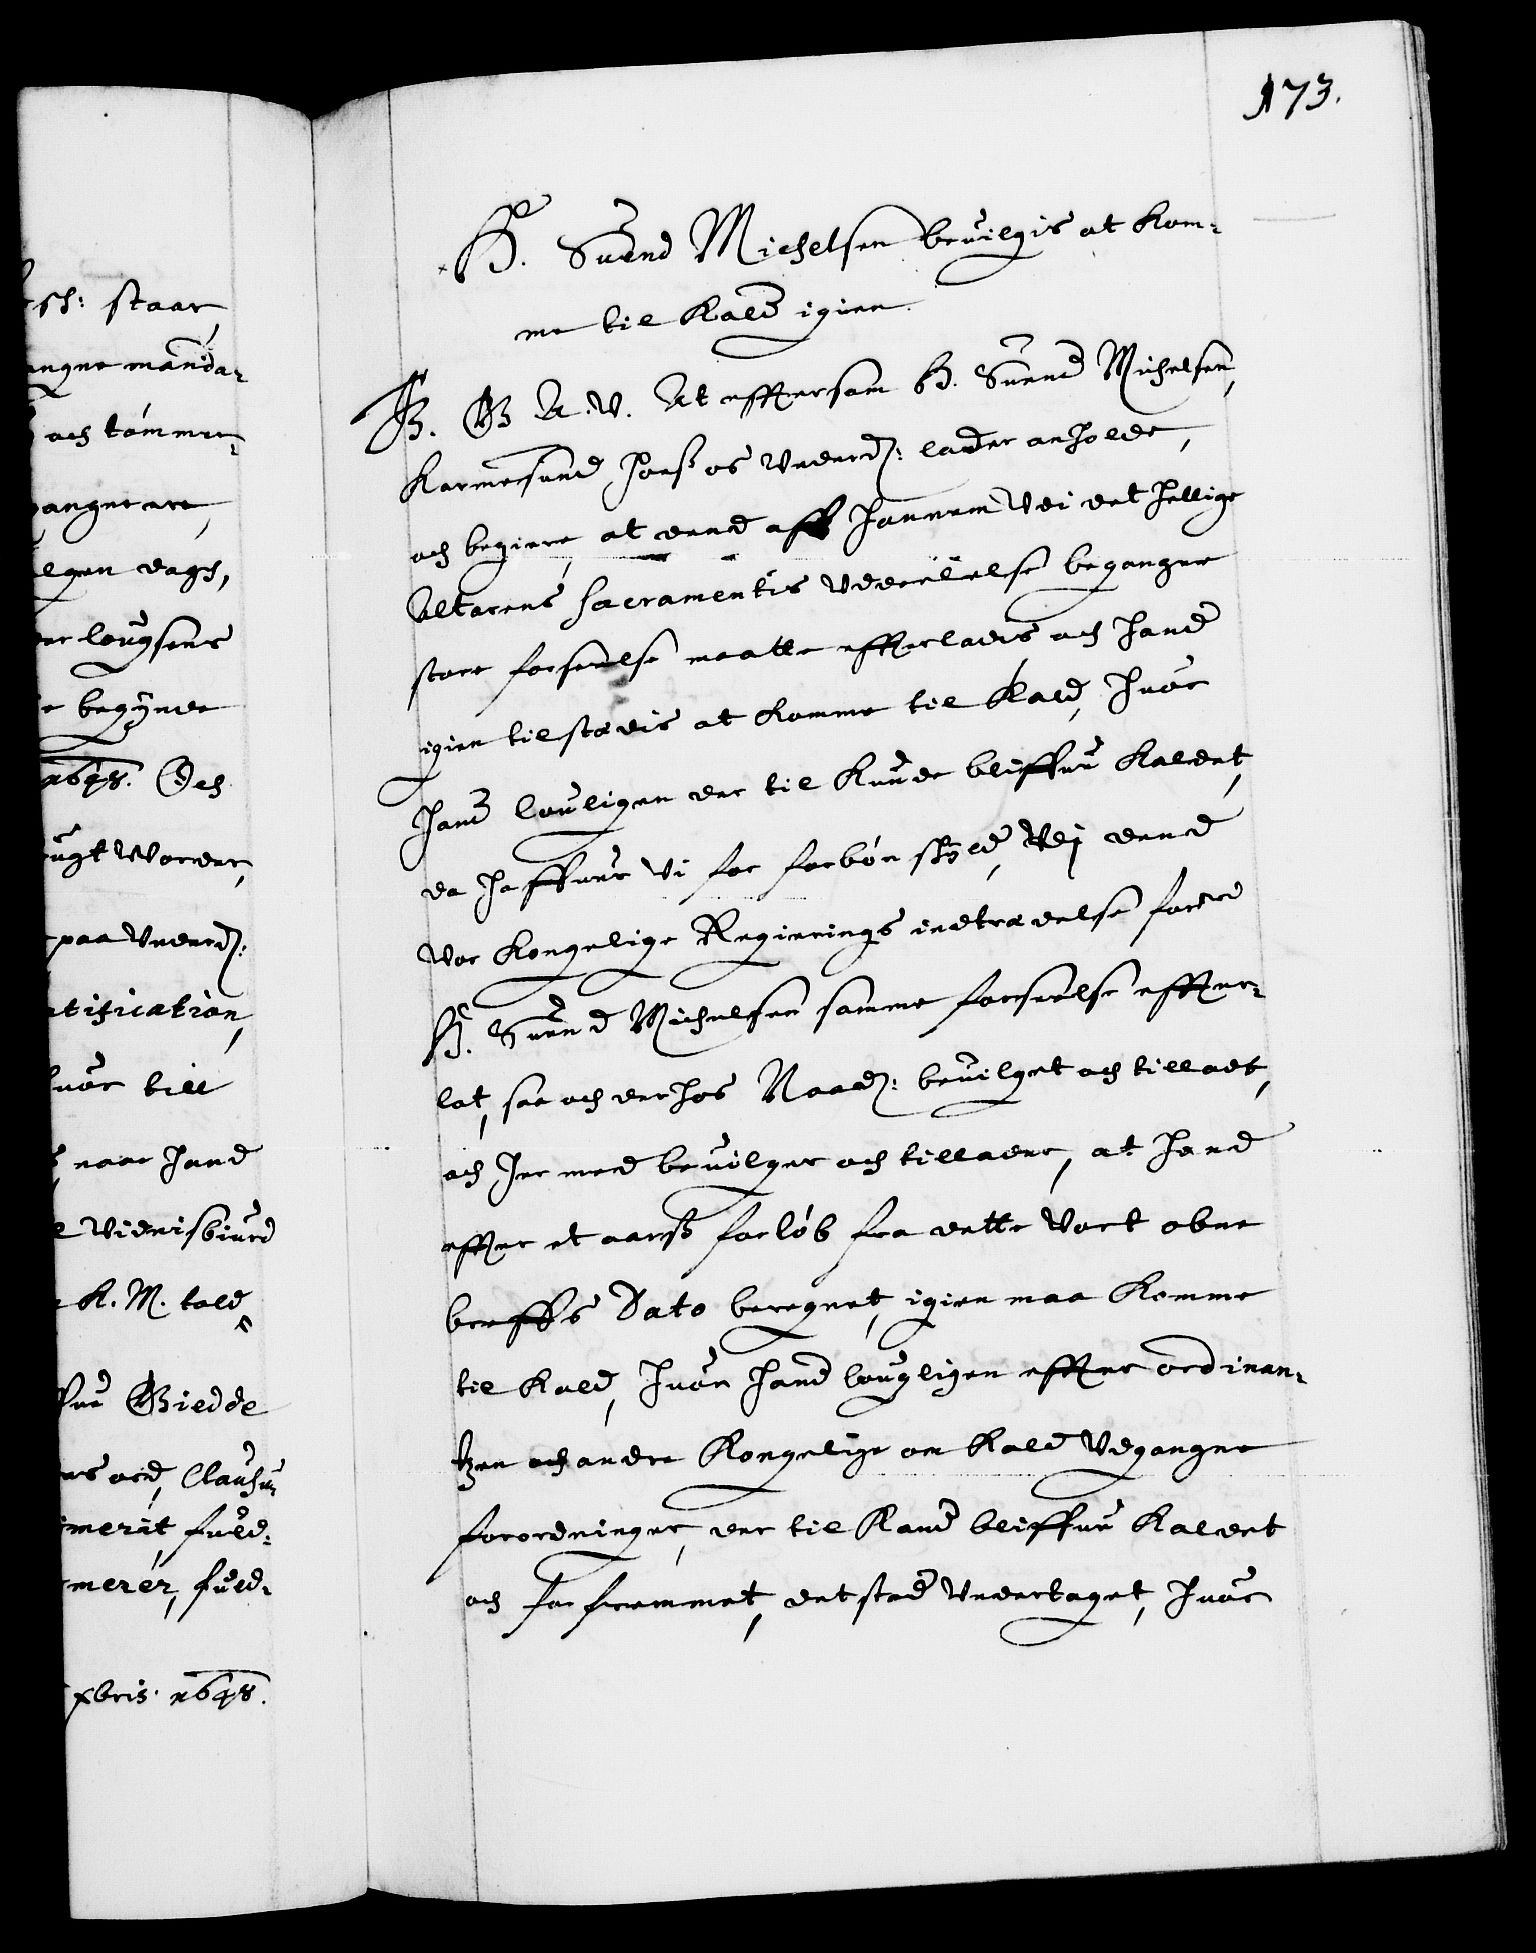 173.
H. Suend Michelsen beuilgis at kom-
me til Kald igien.
G. A. V. At effersom H. Suend Michelsen,
Karmesund hoes os Underd: lader anholde,
och begiere, at dend aff hannem Vdi det hellige
Altarens Sacramentis Vddeelelse begangne
store forseelse maatte efterladis och hand
igien tilstædis at komme til Kald, huor
hand louligen der til kunde bliffue kaldet,
da haffuer Vi for forbøn skyld, Vdj dend
Vor Kongelige Regierings indtrædelse for:ne
H. Suend Michelsen samme forseelse effter-
lat, saa och der hos Naad: beuilget och tilladt,
och her med beuilger och tillader, at hand
effter et aarss forløb fra dette Vort obne
breffs Dato beregnet, igien maa komme
til Kald, huor hand lougligen effter ordinan-
tzen och andre Kongelige om Kald Vdgangne
forordninger, der til kand bliffue kaldet
och forfremmet, det sted Undertaget, huor
sh: staar,
angne manda-
och tømmer-
gangne are,
elgen dagh,
er lougsens
e begynde
1648. Och
ugt Vorder,
paa Underd:
tification,
huor till
naar hand
Videnisbiurd
K. M. told
fue Giedde
ns ord, Clausu-
merit, fuld-
merer, fuld-
xbris. 1648.